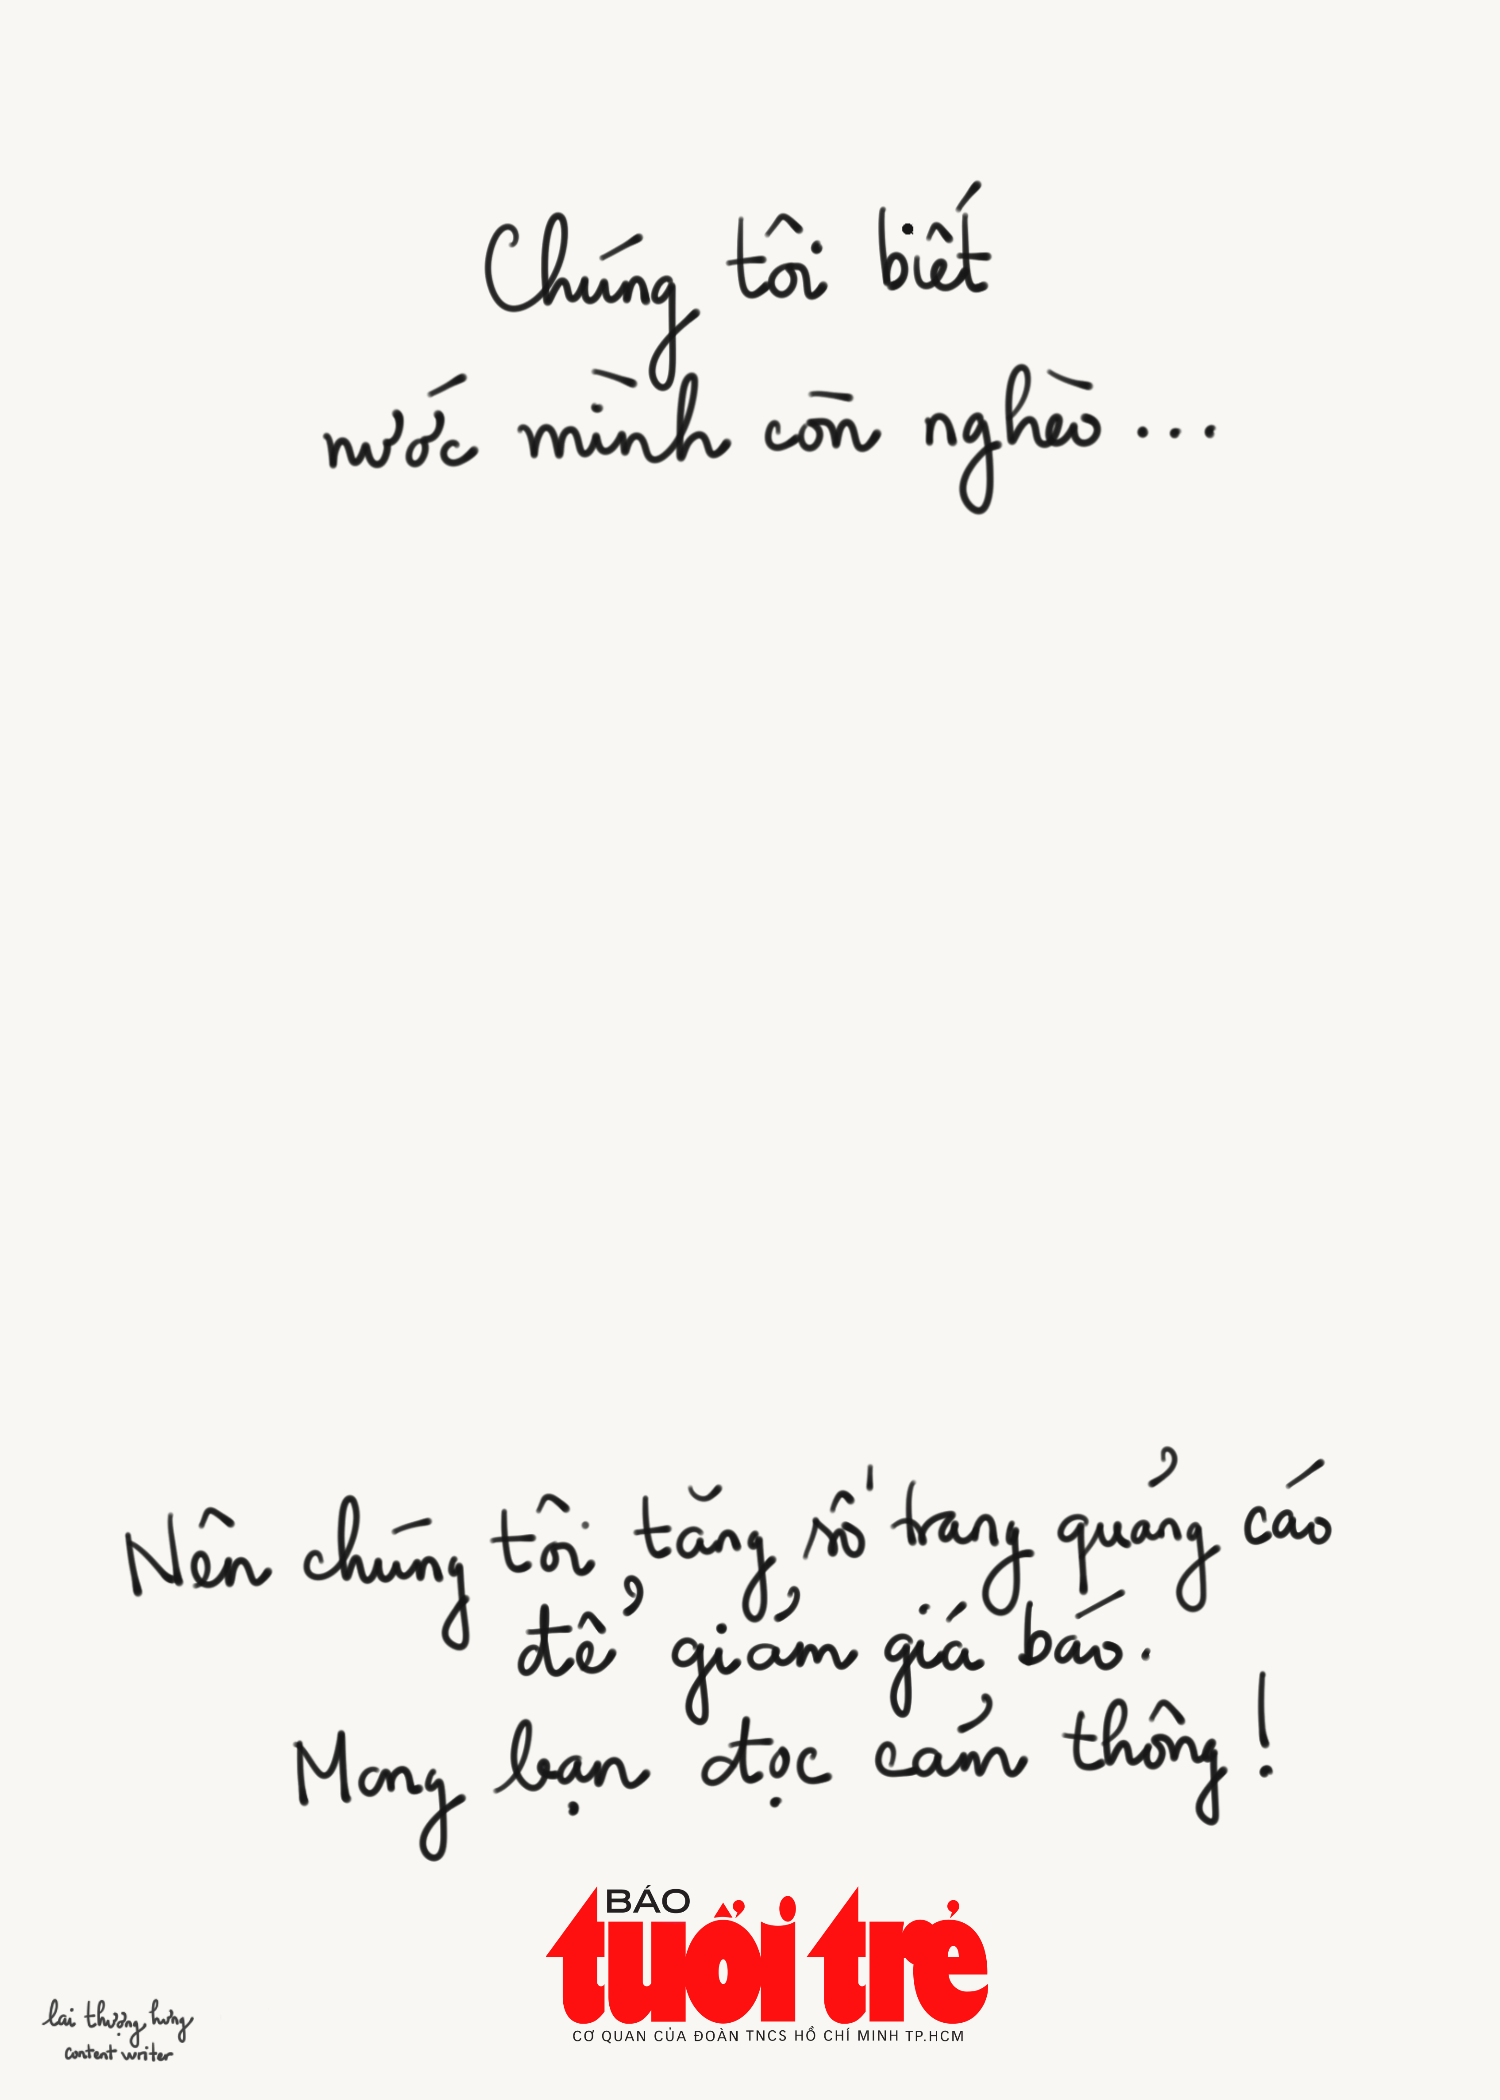 Chúng tôi biết
nước mình còn nghèo...
Nên chúng tôi tăng số trang quảng cáo
để giảm giá báo.
Mong bạn đọc cảm thông!
BÁO
tuổi trẻ
CƠ QUAN CỦA ĐOÀN TNCS HỒ CHÍ MINH TP.HCM
lai thượng hưng
content writer